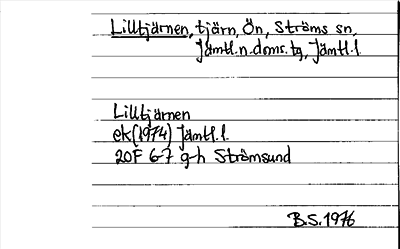 Lilltjärnen, tjärn, Ön, Ströms sn,
Jämtl.n.doms.tg, Jämtl.l.
Lilltjärnen
ek(1974) Jämtl.l.
20F 6-7 g-h Strömsund
B.S. 1976